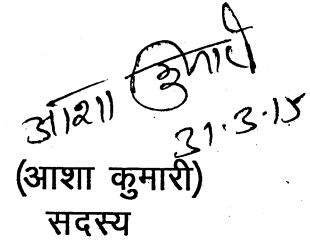 आशा कुमारी
31.3.15
(आशा कुमारी)
सदस्य